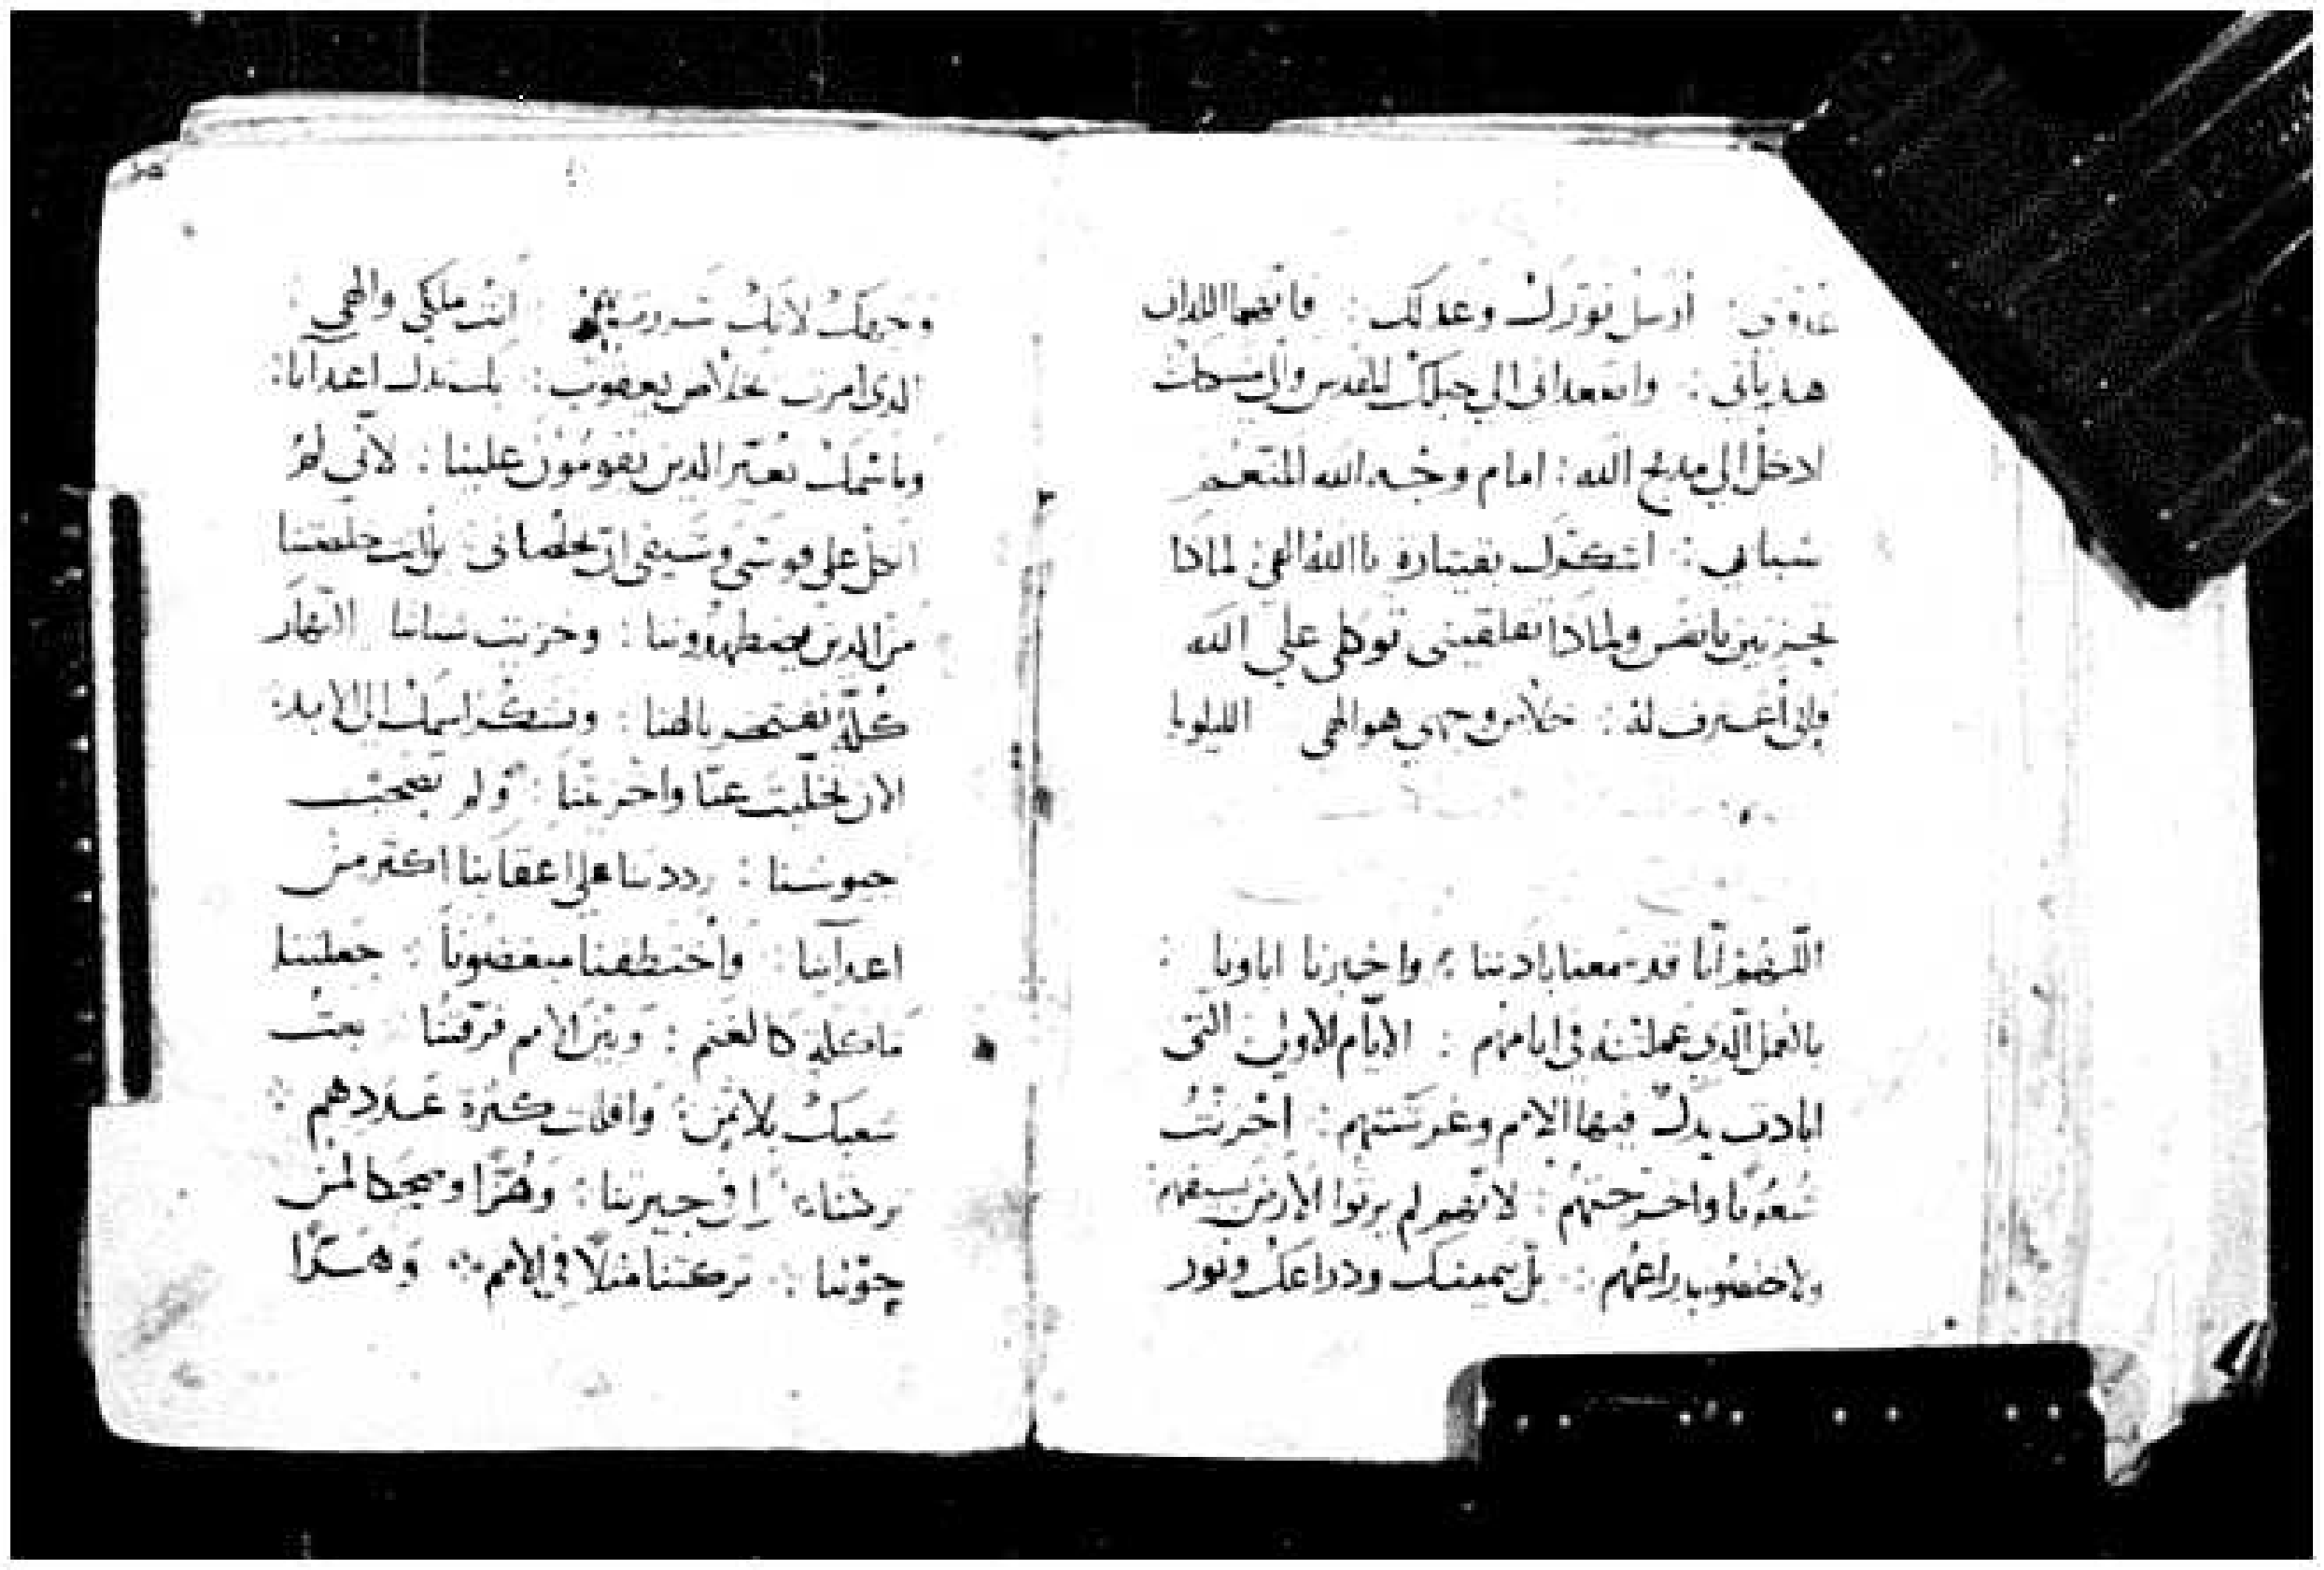 عدوي: أرسل نورك وعدلك: فانهما اللدان
هدياني: واصعداني الي جبلك المقدس والي مسكنك
ادخل الي مدبح الله: امام وجه الله المنعم
شبابي: اشكرك بقيتارة ياالله الهي: لمادا
تحزنين يانفس ولمادا تقلقيني توكلي علي الله
فاني أعترف له: خلاص وجهي هوالهي الليلويا
اللهم انا قد سمعنا بادننا: واخبرنا اباونا:
بالعمل الدي عملته في ايامهم: الايام الاولي التي
ابادت يدك فيها الامم وغرستهم: أخزيت
شعوبا واخرجتهم: لانهم لم يرتوا الارض بسيفهم:
ولا خلصهم دراعهم: بل يمينك ودراعك ونور
وجهك لانك سررت بهم: انت ملكي والهي:
الدي امرت بخلاص يعقوب: بك ندل اعدآنا:
وباسمك نعتر الدين يقومون علينا: لاني لم
اتكل علي قوسي وسيفي لن يخلصاني: بل انت خلصتنا
من الدين يضطهدوننا: وخزيت شنانا النهار
كله نفتخر بالهنا: ونشكر اسمك الي الابد:
الان تخليت عنا واخزيتنا: ولم تصحب
جيوشنا: رددتنا علي اعقابنا اكتر من
اعدآينا: واختطفنا مبغضونا: جعلتنا
ماكلة كالغنم: وبين الامم فرقتنا بعت
شعبك بلا تمن: واقللت كترة عددهم:
تركتنا عارا في جيرتنا: وهزا وضحكا لمن
حولنا: تركتنا متلا في الامم: وهزا